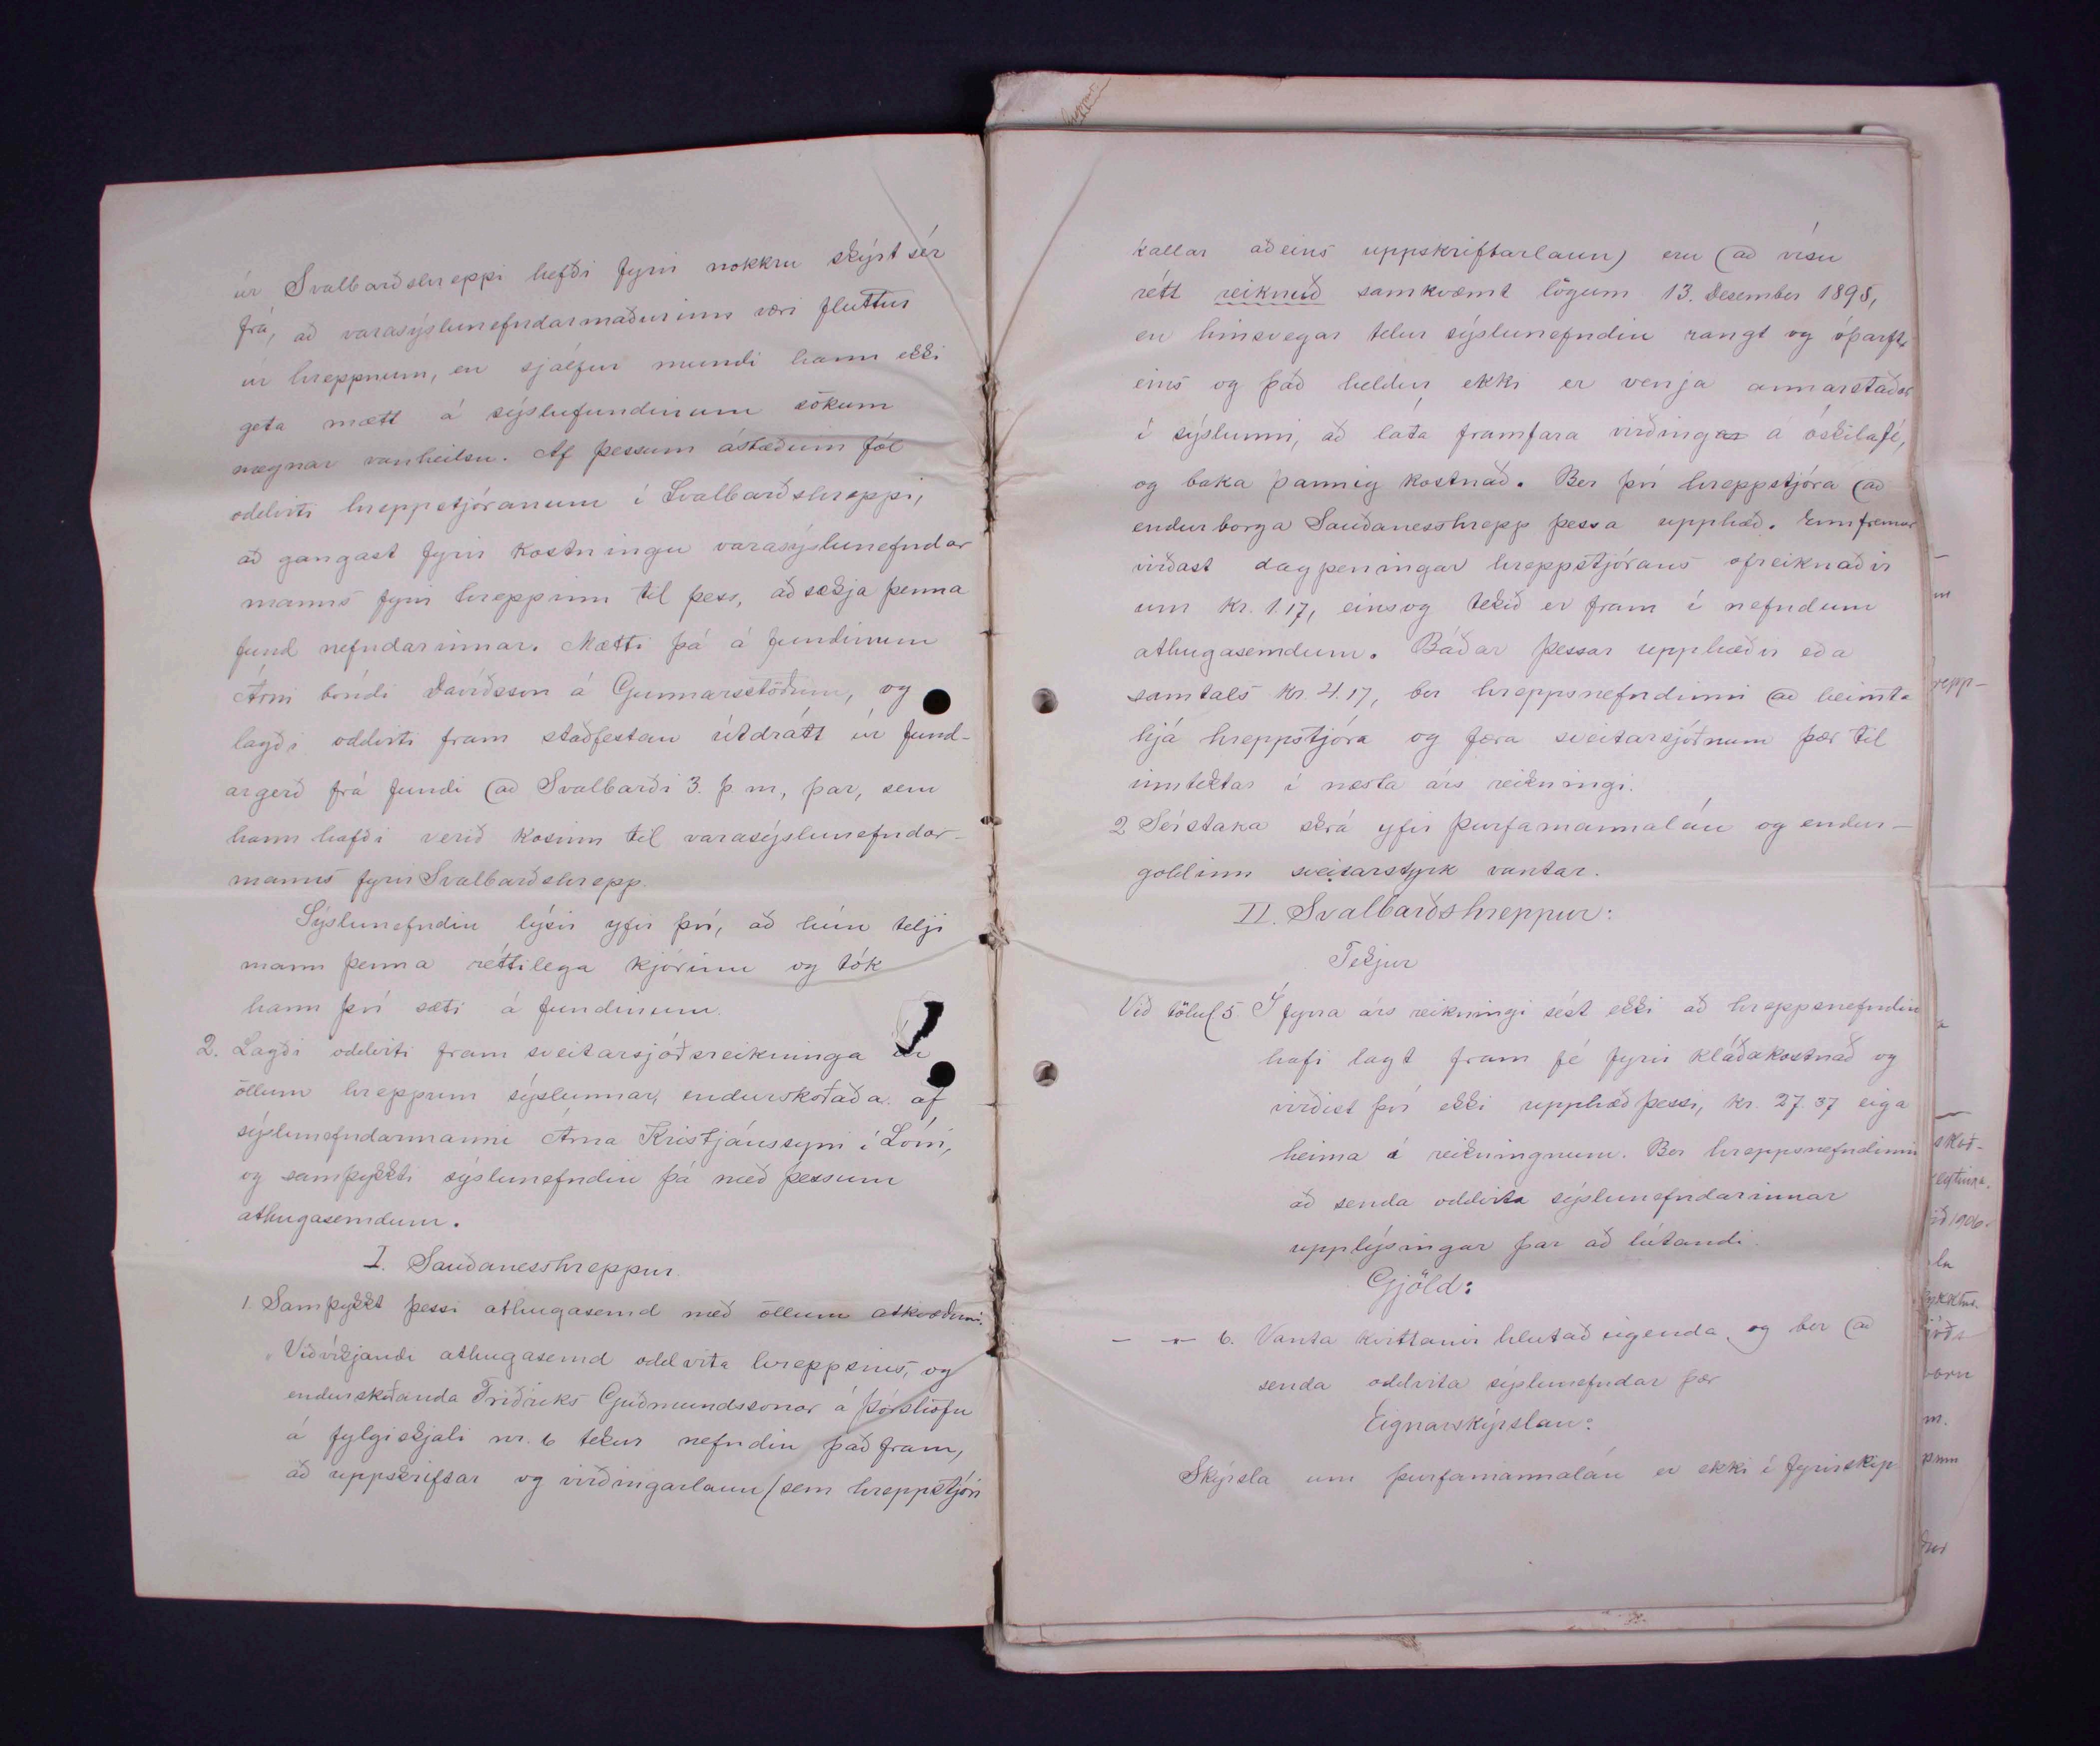 úr Svalbarðshreppi hefði fyrir nokkru skýrt sér
frá, að varasýslunefndarmaðurinn væri fluttur
úr hreppnum, en sjálfur mundi hann ekki
geta mætt á sýslufundinum sökum
megnar vanheilsu. Af þessum ástæðum fól
oddviti hreppstjóranum í Svalbarðshreppi,
að gangast fyrir kostningu varasýslunefndar
manns fyrir hreppinn til þess, að sækja þenna
fund nefndarinnar. Mætti þá á fundinum
Árni bóndi Davíðsson á Gunnarsstöðum, og
lagði oddviti fram staðfestan útdrátt úr fund-
argerð frá fundi að Svalbarði 3. þ m, þar, sem
hann hafði verið kosinn til varasýslunefndar-
manns fyrir Svalbarðshrepp.
Sýslunefndin lýsir yfir því, að hún telji
mann þenna réttilega kjörinn og tók
hann því sæti á fundinum.
2. Lagði oddviti fram sveitarsjóðsreikninga úr
öllum hreppum sýslunnar, endurskoðaða af
sýslunefndarmanni Árna Kristjánssyni í Lóni,
og samþykkti sýslunefndin þá með þessum
athugasemdum.
I. Sauðanesshreppur.
1. Samþykkt þessi athugasemd með öllum atkvæðum.
"Viðvíkjandi athugasemd oddvita hreppsins, og
endurskoðanda Friðriks Guðmundssonar á Þórshöfn
á fylgiskjali nr. 6 tekur nefndin það fram,
að uppskriftar og virðingarlaun (sem hreppstjóri
kallar aðeins uppskriftarlaun) eru að vísu
rétt reiknuð samkvæmt lögum 13. Desember 1895,
en hinsvegar telur sýslunefndin rangt og óþarft,
eins og það heldur ekki er venja annarstaðar
í sýslunni, að láta framfara virðingar á óskilafé,
og baka þannig kostnað. Ber því hreppstjóra að
endurborga Sauðanesshrepp þessa upphæð. Ennfremur
virðast dagpeningar hreppstjórans ofreiknaðir
um Kr. 1.17, einsog tekið er fram í nefndum
athugasemdum. Báðar þessar upphæðir eða
samtals Kr. 4.17, ber hreppsnefndinni að heimta
hjá hreppstjóra og færa sveitarsjóðnum þær til
inntektar í næsta árs reikningi.
2 Sérstaka skrá yfir þurfamannalán og endur-
goldinn sveitarstyrk vantar.
II. Svalbarðshreppur:
Tekjur
Við tölul 5 Í fyrra árs reikningi sést ekki að hreppsnefndin
hafi lagt fram fé fyrir kláðakostnað og
virðist því ekki upphæð þessi, kr. 27.37 eiga
heima í reikningnum. Ber hreppsnefndinni
að senda oddvita sýslunefndarinnar
upplýsingar þar að lútandi.
Gjöld:
— „ — 6. Vanta kvittanir hlutaðeigenda, og ber að
senda oddvita sýslunefndar þær
Eignarskýrslan:
Skýrsla um þurfamannalán er ekki í fyrirskip